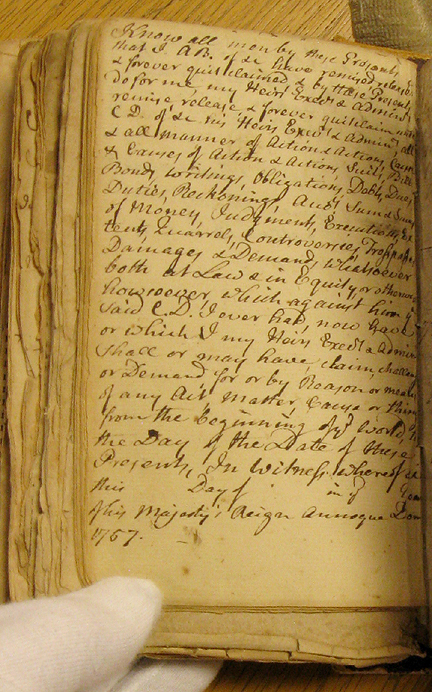 Know all men by these Presents
that I A.B. of &c have remised released
& forever quitclaimed & by these Presents
Do for me my Heirs Execrs & Adminrs
remise release & forever quitclaim unto
C.D. of &c his Heirs Execrs & Adminrs all
& all manner of Action & Actions Cause
& Causes of Action & Actions, Suits, Bills
Bonds, Writings, Obligations, Debts, Dues
Duties, Reckonings, and Sum & Sums
of Money, Judgments, Executions, Ex
tents, Quarrels, Controversies, Trespasses
Damages & Demands Whatsoever
both at Law & in Equity or otherwise
howsoever which against him ye
said C.D. I ever had, now have
or which I my Heirs Execrs & Adminrs
shall or may have claim, challenge
or Demand for or by Reason or means
of any Act Matter Cause or Thing
from the beginning of ye World, to
the Day of the Date of these
Presents, In Witness whereof
this Day of in ye Year
of his Majesty's Reign Annoque Dom
1757.